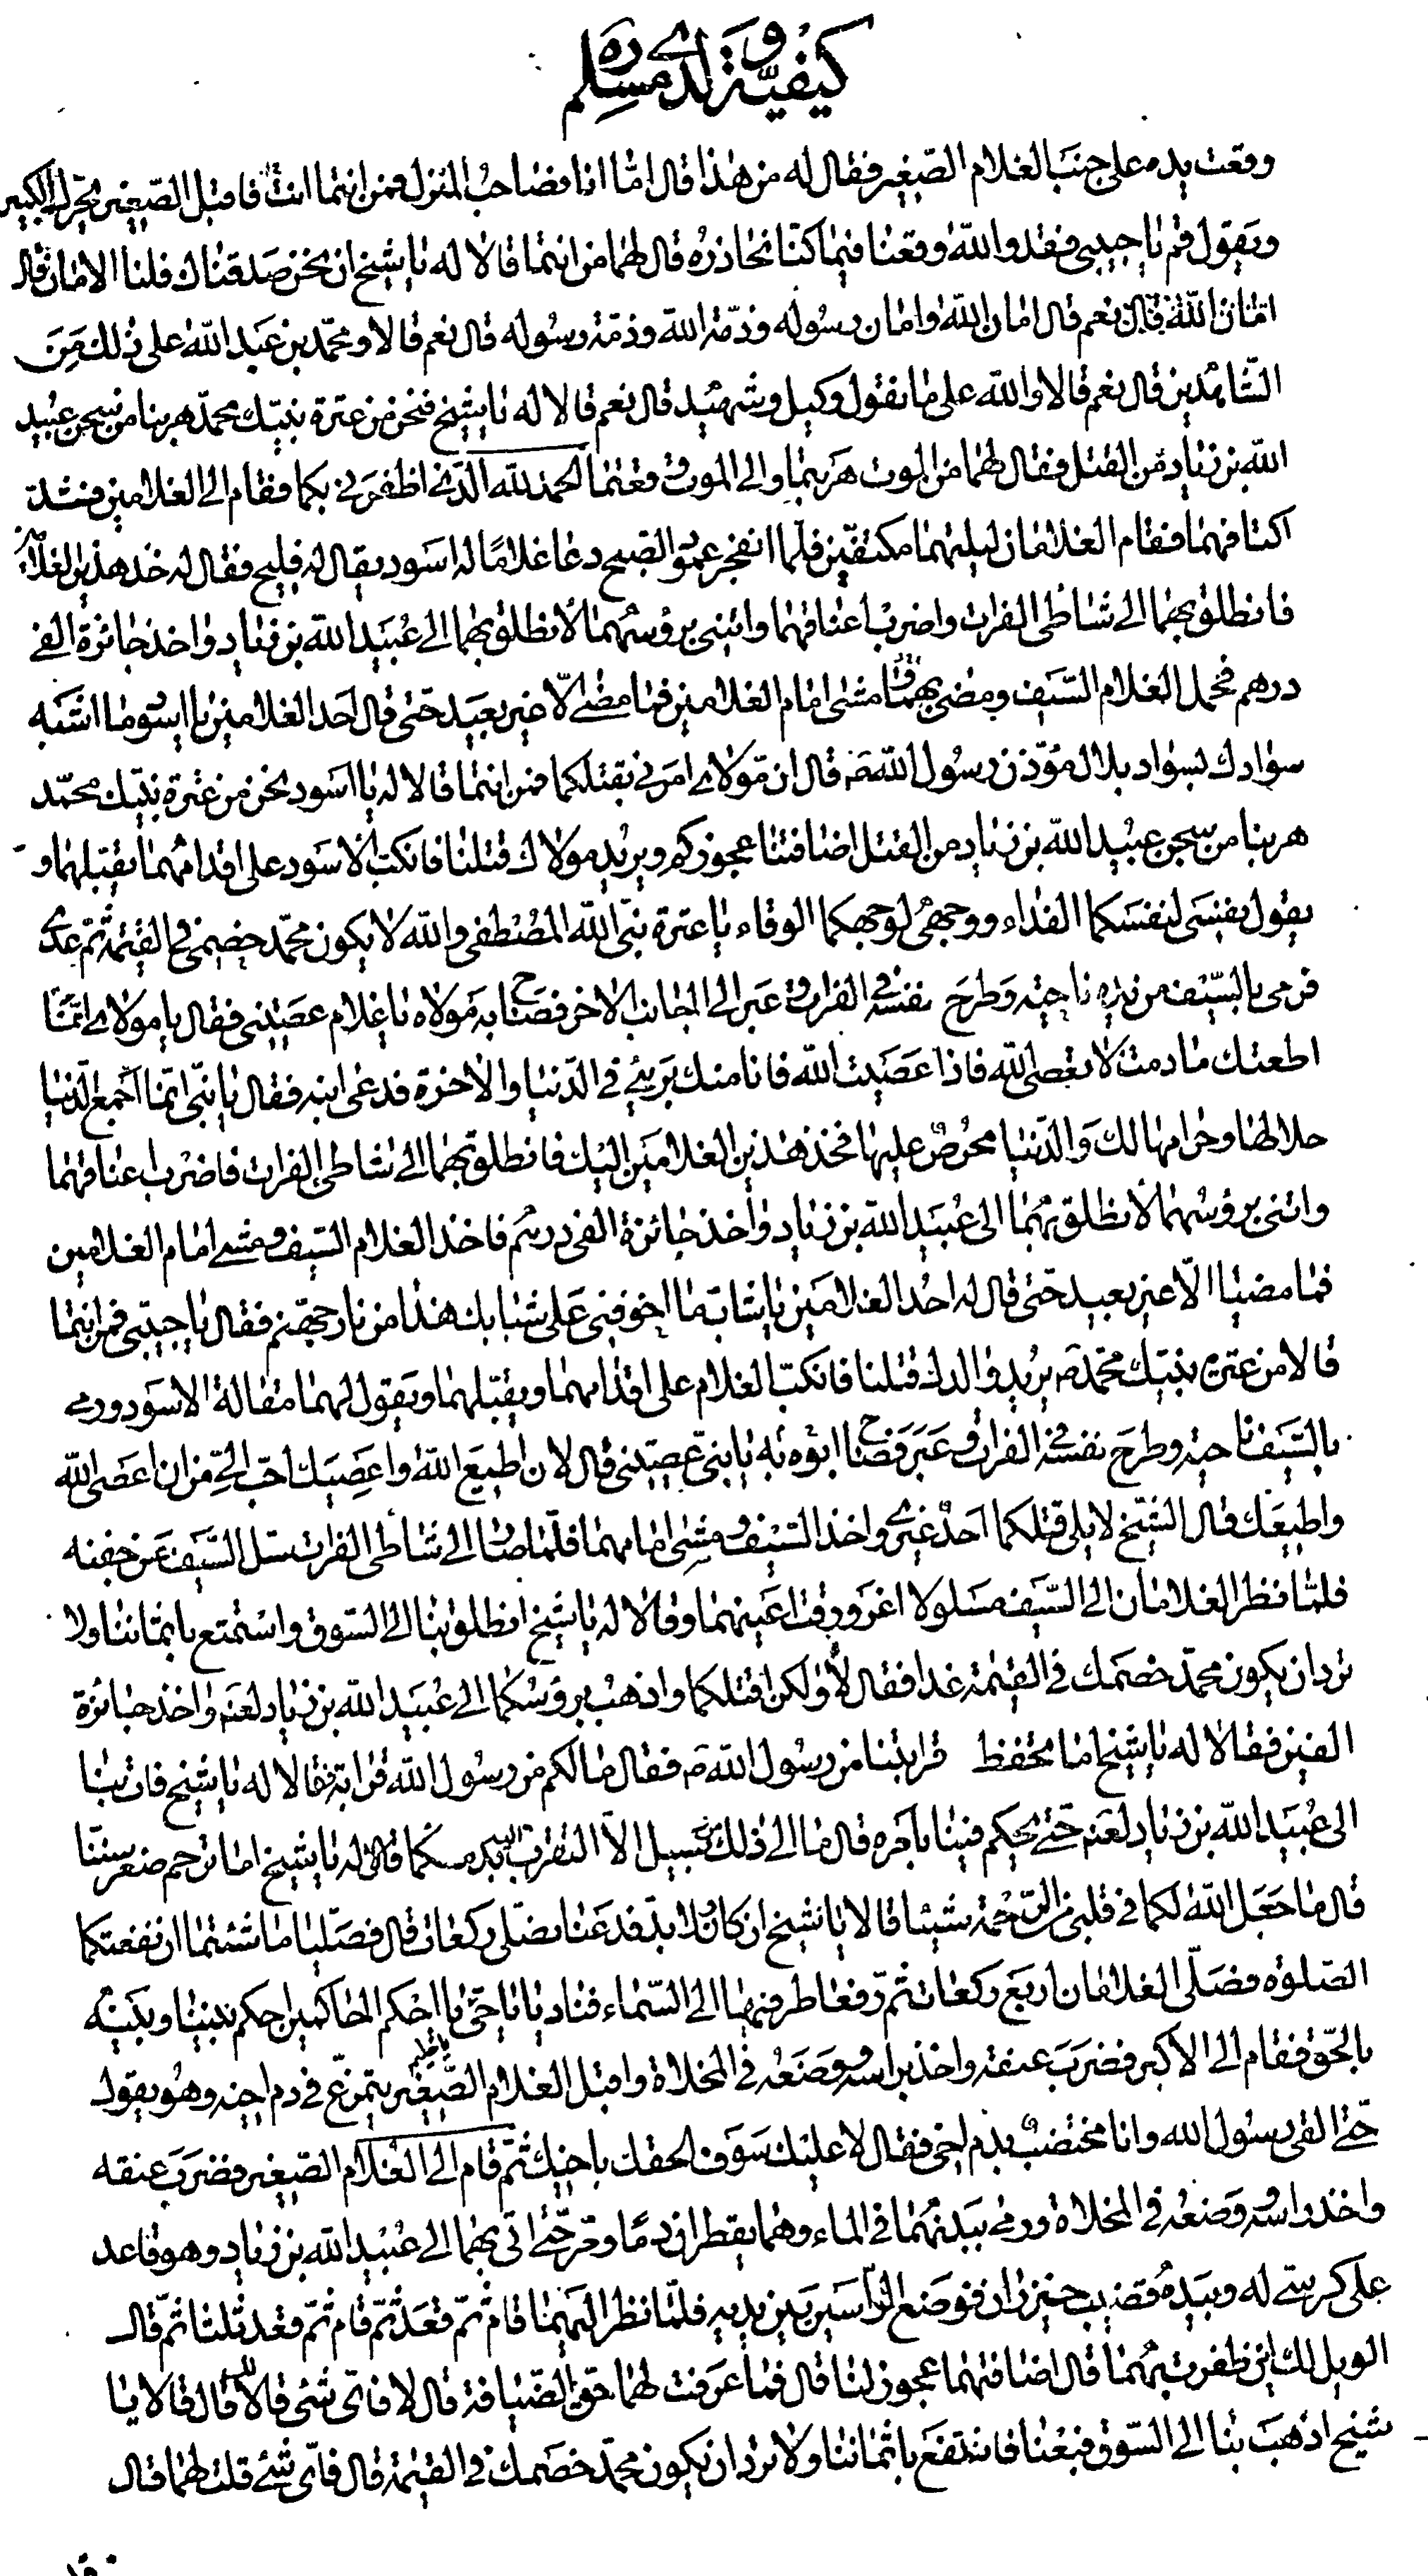 كيفيّة ولدي مسلم ره
وقعت يده على جنب الغلام الصّغير فقال له من هذا قال امّا انا فصاحب المنزل فمن انتما فاقبل الصّغير يحرك الكبير
ويقول قم يا حبيبى فقد والله وقعنا فيما كنّا نحاذره قال لهما من انتما قالا له يا شيخ ان نحن صدقناك فلنا الامان قال
نعم قال امان الله وامان رسوله وذمّة الله وذمّة رسوله قال نعم قالا ومحمّد بن عبد الله على ذلك من
الشّاهدين قال نعم قالا والله على ما نقول وكيل وشهيد قال نعم قالا له يا شيخ فنحن من عترة نبيّك محمّد هربنا من سجن عبيد
الله بن زياد من القتل فقال لهما من الموت هربتما والى الموت وقعتما الحمد لله الّذى اظفرنى بكما فقام الى الغلامين فشد
اكتافهما فقام الغلامان ليلتهما مكتفين فلما انفجر عمود الصبح دعا غلامًا له اسود يقال له فليح فقال له خذ هذين الغلامين
فانطلق بهما الى شاطئ الفرات واضرب اعناقهما وائتنى برؤسهما لانطلق بهما الى عبيد الله بن زياد واخذ جائزة الفى
درهم فحمل الغلام السّيف ومضى بهما ومشى امام الغلامين فما مضى الّا غير بعيد حتى قال احد الغلامين يا اسود ما اشبه
سوادك بسواد بلال مؤذّن رسول الله ص قال ان مولاى امرنى بقتلكما فمن انتما قالا له يا اسود نحن من عترة نبيّك محمّد
هربنا من سجن عبيد الله بن زياد من القتل اضافتنا عجوزكم ويريد مولاك قتلنا فانكب الاسود على اقدامهما يقبلهما و
يقول نفسى لنفسكما الفداء ووجهى لوجهكما الوقاء يا عترة نبىّ الله المصطفى والله لا يكون محمّد خصمى فى القيمة ثم عدى
فرمى بالسّيف من يده ناحية وطرح نفسه فى الفرات وعبر الى الجانب الاخر فصاح به مولاه يا غلام عصيتنى فقال يا مولاى انّما
اطعتك ما دمت لا تعصى الله فاذا عصيت الله فانا منك برىء فى الدّنيا والاخرة فدعى ابنه فقال يا بنىّ انما اجمع الدنيا
حلالها وحرامها لك والدّنيا محرص عليها فخذ هذين الغلامين اليك فانطلق بهما الى شاطئ الفرات فاضرب اعناقهما
وائتنى برؤسهما لانطلق بهما الى عبيد الله بن زياد واخذ جائزة الفى درهم فاخذ الغلام السّيف ومشى امام الغلامين
فما مضيا الّا غير بعيد حتّى قال له احد الغلامين يا شابّ ما اخوفنى على شبابك هذا من نار جهنم فقال يا حبيبى فمن انتما
قالا من عترة نبيّك محمّد ص يريد والدك قتلنا فانكبّ الغلام على اقدامهما ويقبّلهما ويقول لهما مقالة الاسود ورمى
بالسّيف ناحية وطرح نفسه فى الفرات وعبر فصاح ابوه به يا بنىّ عصيتنى قال لان اطيع الله واعصيك احبّ الىّ من ان اعصى الله
واطيعك قال الشيخ لا يلى قتلكما احد غيرى واخذ السّيف ومشى امامهما فلمّا صار الى شاطئ الفرات سل السّيف عن جفنه
فلمّا نظر الغلامان الى السّيف مسلولا اغرورقت اعينهما وقالا له يا شيخ انطلق بنا الى السوق واستمتع باثماننا ولا
ترد ان يكون محمّد خصمك فى القيمة غدا فقال لا ولكن اقتلكما واذهب برؤسكما الى عبيد الله بن زياد لعنه واخذ جائزة
الفين فقالا له يا شيخ اما تحفظ قرابتنا من رسول الله ص فقال ما لكم من رسول الله قرابة فقالا له يا شيخ فات بنا
الى عبيد الله بن زياد لعنه حتّى يحكم فينا بامره قال ما الى ذلك سبيل الّا التقرب اليه بدمكما قالا له يا شيخ اما ترحم صغر سننّا
قال ما جعل الله لكما فى قلبى من الرّحمة شيئا قالا يا شيخ ان كان ولا بدّ فدعنا نصلّى ركعات قال فصلّيا ما شئتما ان نفعتكما
الصّلوة فصلّى الغلامان اربع ركعات ثمّ رفعا طرفيهما الى السّماء فناديا يا حىّ يا احكم الحاكمين احكم بيننا وبينه
بالحق فقام الى الاكبر فضرب عنقه واخذ براسه ووضعه فى المخلاة واقبل الغلام الصّغير يتمرّغ فى دم اخيه وهو يقول
حتّى القى رسول الله وانا مختضب بدم اخى فقال لا عليك سوف الحقك باخيك ثمّ قام الى الغلام الصّغير فضرب عنقه
واخذ راسه ووضعه فى المخلاة ورمى ببدنهما فى الماء وهما يقطران دمًا ومرّ حتّى اتى بهما الى عبيد الله بن زياد وهو قاعد
على كرسىّ له وبيده قضيب خيزران فوضع الرّاسين بين يديه فلمّا نظر اليهما قام ثمّ قعد ثمّ قام ثمّ قعد ثلثا ثمّ قال
الويل لك اين ظفرت بهما قال اضافتهما عجوز لنا قال فما عرفت لهما حقّ الضّيافة قال لا قال فاىّ شئ قالا لك قال قالا يا
شيخ اذهب بنا الى السّوق فبعنا فانتفع باثماننا ولا ترد ان يكون محمّد خصمك فى القيمة قال فاىّ شئ قلت لهما قال